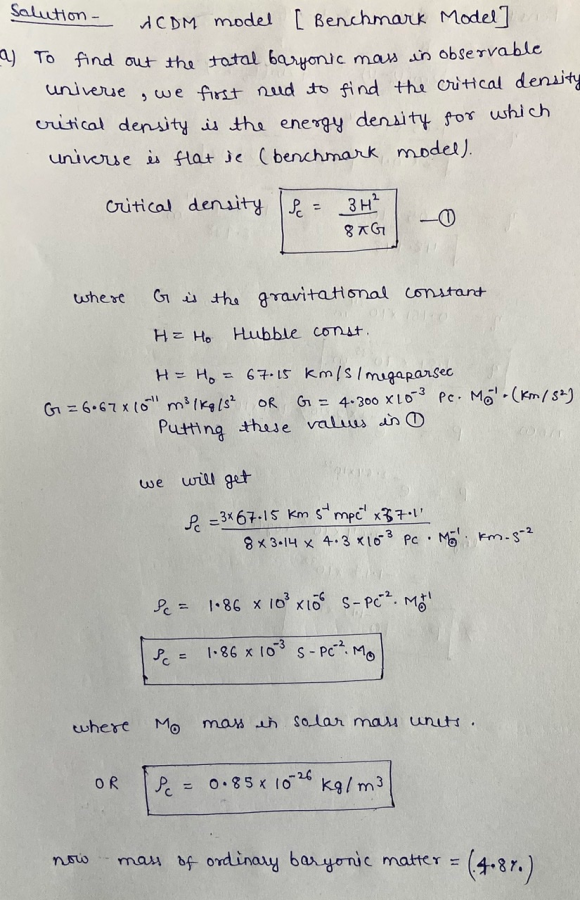 Salution - ΛCDM model [Benchmark Model]
a) To find out the total baryonic mass in observable
universe, we first need to find the critical density
critical density is the energy density for which
universe is flat ie (benchmark model).
critical density ρc = 3H² / 8πG —①
where G is the gravitational constant
H = H₀ Hubble const.
H = H₀ = 67.15 km/s/megaparsec
G = 6.67 x 10⁻¹¹ m³/kg/s² OR G = 4.300 x 10⁻³ Pc. M⊙⁻¹. (km/s²)
Putting these values in ①
we will get
ρc = 3x 67.15 km s⁻¹ mpc⁻¹ x 67.1'
8 x 3.14 x 4.3 x 10⁻³ Pc . M⊙⁻¹. km-s⁻²
ρc = 1.86 x 10³ x 10⁻⁶ s-pc⁻². M⊙⁺¹
ρc = 1.86 x 10⁻³ s-pc⁻². M⊙
where M⊙ mass in solar mass units.
OR ρc = 0.85 x 10⁻²⁶ kg/m³
now mass of ordinary baryonic matter = (4.8%)